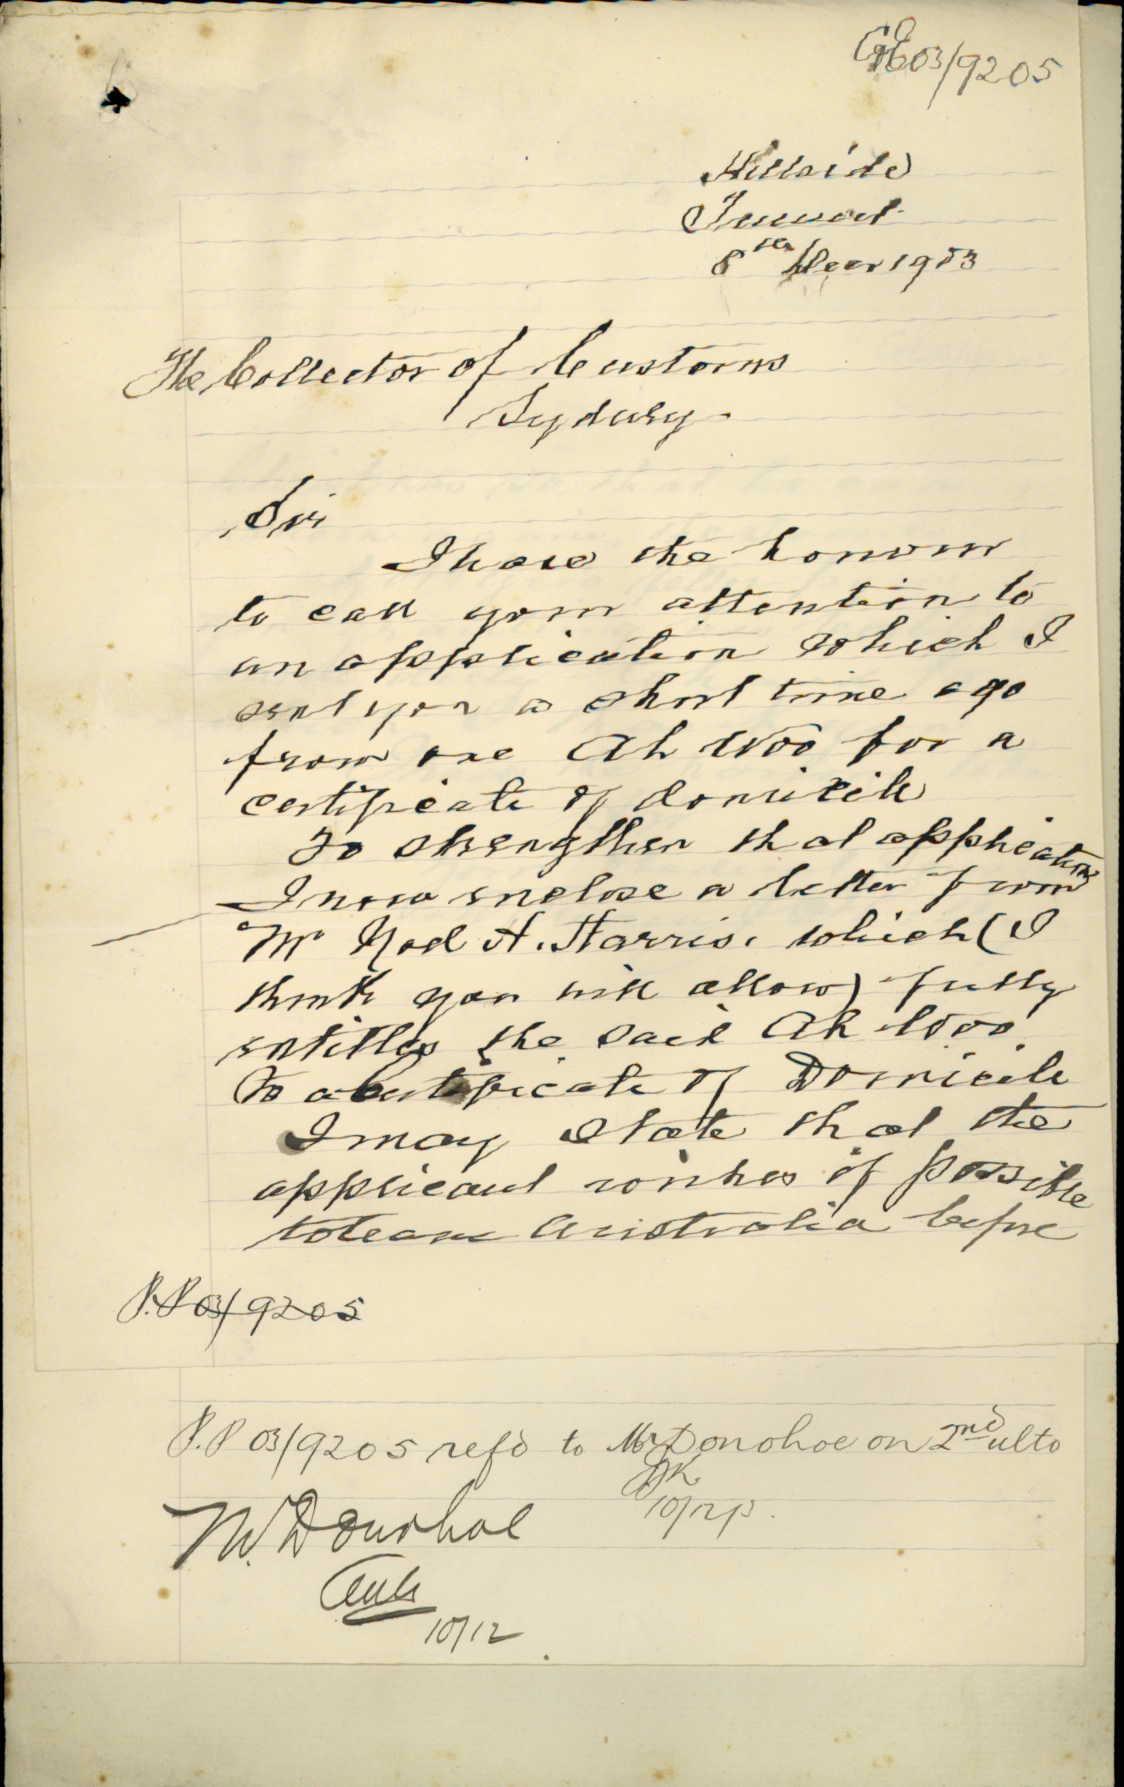 03/9205
Hillside
8th Decr 1903
The Collector of Customs
Sydney
Sir
I have the honour
to call your attention to
an application which I
sent you a short time ago
from one Ah Woo for a
certificate of domicile
To strengthen that application
I now enclose a letter from
Mr Yod A. Harris. which (I
think you will allow) fully
entitles the said Ah Woo
to a Certificate of Domicile
I may state that the
applicant wishes if possible
to leave Australia before
P.P 03/9205
P.P 03/9205 refd to Mr Donohoe on 2nd ulto
10/12/3.
Mr. Donohoe
10/12